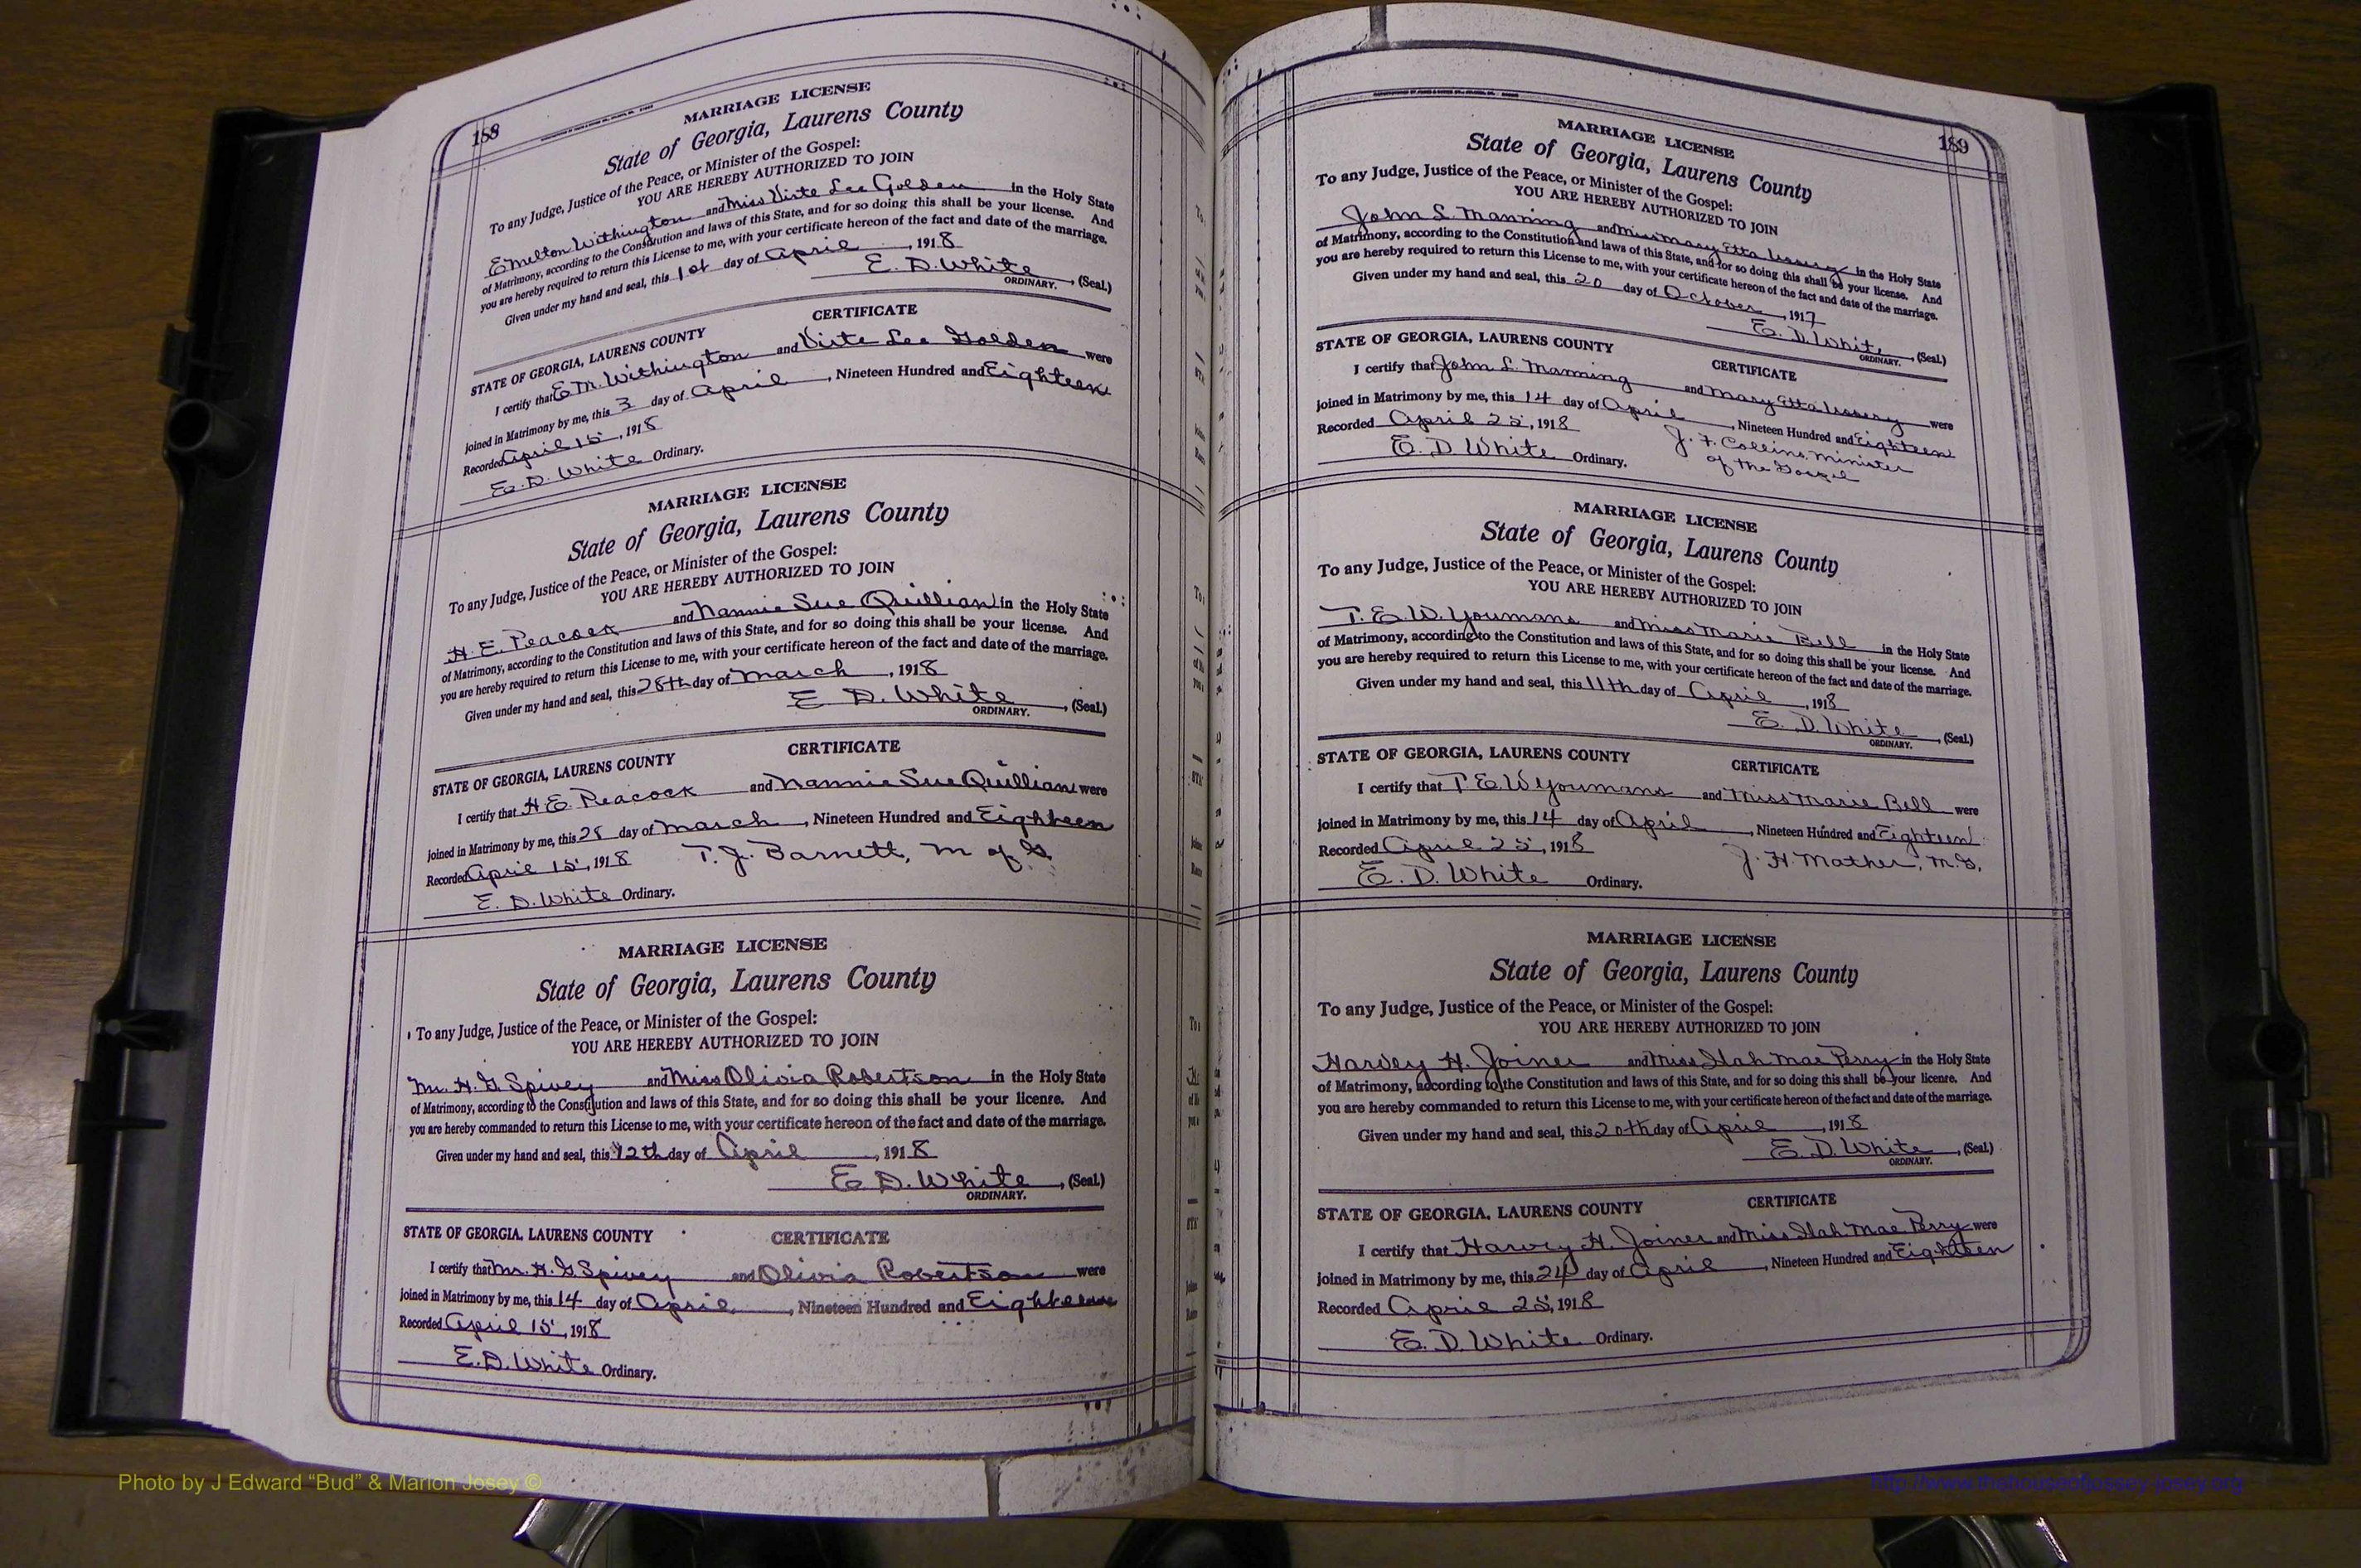 188
MARRIAGE LICENSE
State of Georgia, Laurens County
To any Judge, Justice of the Peace, or Minister of the Gospel:
YOU ARE HEREBY AUTHORIZED TO JOIN
Emelton Withington and Miss Virte Lee Golden in the Holy State
of Matrimony, according to the Constitution and laws of this State, and for so doing this shall be your license. And
you are hereby required to return this License to me, with your certificate hereon of the fact and date of the marriage.
Given under my hand and seal, this 1st day of April, 1918
E. D. White, (Seal.)
ORDINARY.
CERTIFICATE
STATE OF GEORGIA, LAURENS COUNTY
I certify that E M. Withington and Virte Lee Golden were
joined in Matrimony by me, this 3 day of April, Nineteen Hundred and Eighteen
Recorded April 15, 1918
E. D. White Ordinary.
MARRIAGE LICENSE
State of Georgia, Laurens County
To any Judge, Justice of the Peace, or Minister of the Gospel:
YOU ARE HEREBY AUTHORIZED TO JOIN
H. E. Peacock and Nannie Sue Quillian in the Holy State
of Matrimony, according to the Constitution and laws of this State, and for so doing this shall be your license. And
you are hereby required to return this License to me, with your certificate hereon of the fact and date of the marriage.
Given under my hand and seal, this 28th day of March, 1918
E D. White, (Seal.)
ORDINARY.
CERTIFICATE
STATE OF GEORGIA, LAURENS COUNTY
I certify that H E. Peacock and Nannie Sue Quillian were
joined in Matrimony by me, this 28 day of March, Nineteen Hundred and Eighteen
Recorded April 15, 1918 T. J. Barnett, M of G.
E. D. White Ordinary.
MARRIAGE LICENSE
State of Georgia, Laurens County
To any Judge, Justice of the Peace, or Minister of the Gospel:
YOU ARE HEREBY AUTHORIZED TO JOIN
Mr. H. G Spivey and Miss Olivia Robertson in the Holy State
of Matrimony, according to the Constitution and laws of this State, and for so doing this shall be your licenre. And
you are hereby commanded to return this License to me, with your certificate hereon of the fact and date of the marriage.
Given under my hand and seal, this 12th day of April, 1918
E. D. White, (Seal.)
ORDINARY.
STATE OF GEORGIA, LAURENS COUNTY CERTIFICATE
I certify that Mr. H. G Spivey and Olivia Robertson were
joined in Matrimony by me, this 14 day of April, Nineteen Hundred and Eighteen
Recorded April 15, 1918
E. D. White Ordinary.
189
MARRIAGE LICENSE
State of Georgia, Laurens County
To any Judge, Justice of the Peace, or Minister of the Gospel:
YOU ARE HEREBY AUTHORIZED TO JOIN
John L. Manning and Miss Mary Etta Ussery in the Holy State
of Matrimony, according to the Constitution and laws of this State, and for so doing this shall be your license. And
you are hereby required to return this License to me, with your certificate hereon of the fact and date of the marriage.
Given under my hand and seal, this 20 day of October, 1917
E. D. White, (Seal.)
ORDINARY.
STATE OF GEORGIA, LAURENS COUNTY CERTIFICATE
I certify that John L. Manning and Mary Etta Ussery were
joined in Matrimony by me, this 14 day of April, Nineteen Hundred and Eighteen
Recorded April 25, 1918 J. F. Collins, Minister
of the Gospel
E. D. White Ordinary.
MARRIAGE LICENSE
State of Georgia, Laurens County
To any Judge, Justice of the Peace, or Minister of the Gospel:
YOU ARE HEREBY AUTHORIZED TO JOIN
T. E. W. Youmans and Miss Marie Bell in the Holy State
of Matrimony, according to the Constitution and laws of this State, and for so doing this shall be your license. And
you are hereby required to return this License to me, with your certificate hereon of the fact and date of the marriage.
Given under my hand and seal, this 11th day of April, 1918
E. D. White, (Seal.)
ORDINARY.
STATE OF GEORGIA, LAURENS COUNTY CERTIFICATE
I certify that T. E. W Youmans and Miss Marie Bell were
joined in Matrimony by me, this 14 day of April, Nineteen Hundred and Eighteen
Recorded April 25, 1918 J. H. Mather, M.G.
E. D. White Ordinary.
MARRIAGE LICENSE
State of Georgia, Laurens County
To any Judge, Justice of the Peace, or Minister of the Gospel:
YOU ARE HEREBY AUTHORIZED TO JOIN
Harvey H. Joiner and Miss Ilah Mae Perry in the Holy State
of Matrimony, according to the Constitution and laws of this State, and for so doing this shall be your licenre. And
you are hereby commanded to return this License to me, with your certificate hereon of the fact and date of the marriage.
Given under my hand and seal, this 20th day of April, 1918
E. D. White, (Seal.)
ORDINARY.
STATE OF GEORGIA, LAURENS COUNTY CERTIFICATE
I certify that Harvey H. Joiner and Miss Ilah Mae Perry were
joined in Matrimony by me, this 24 day of April, Nineteen Hundred and Eighteen
Recorded April 25, 1918
E. D. White Ordinary.
Photo by J Edward “Bud” & Marion Josey ©
http://www.thehouseofjossey-josey.org